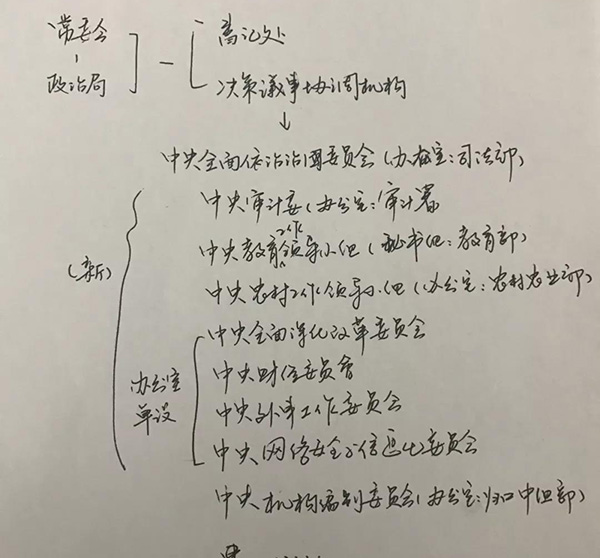 常委会
政治局
书记处
决策议事协调机构
中央全面依法治国委员会(办公室:司法部)
(新)
中央审计委(办公室:审计署
中央教育工作领导小组(秘书组:教育部)
中央农村工作领导小组(办公室:农村农业部)
办公室
单设
中央全面深化改革委员会
中央财经委员会
中央外事工作委员会
中央网络安全和信息化委员会
中央机构编制委员会(办公室:归口中组部)